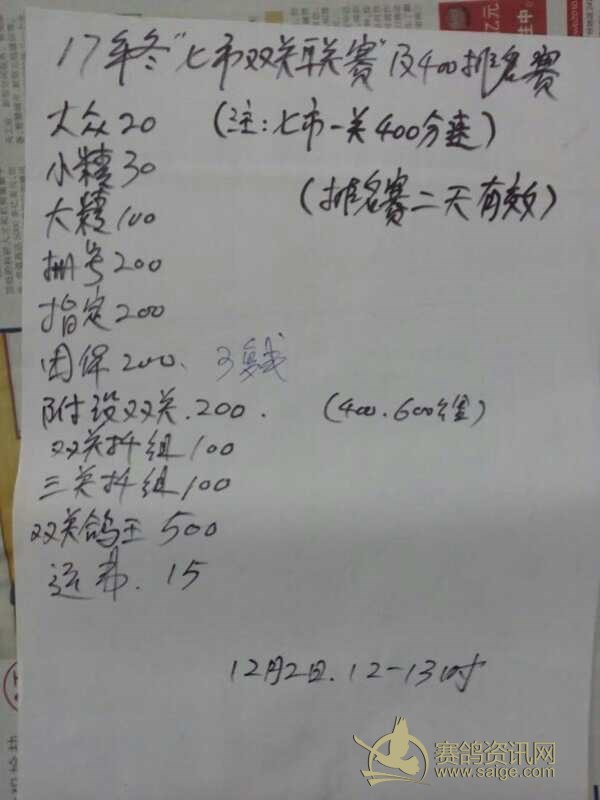 17年冬"七市双关联赛"及400排名赛
大众20 (注:七市一关400分速)
小精30
大精100 (排名赛二天有效)
捆号200
指定200
团保200. 可复战
附设双关.200. (400.600公里)
双关挌组100
三关挌组100
双关鸽王 500
运费. 15
12月2日.12-13时
赛鸽资讯网
www.saige.com